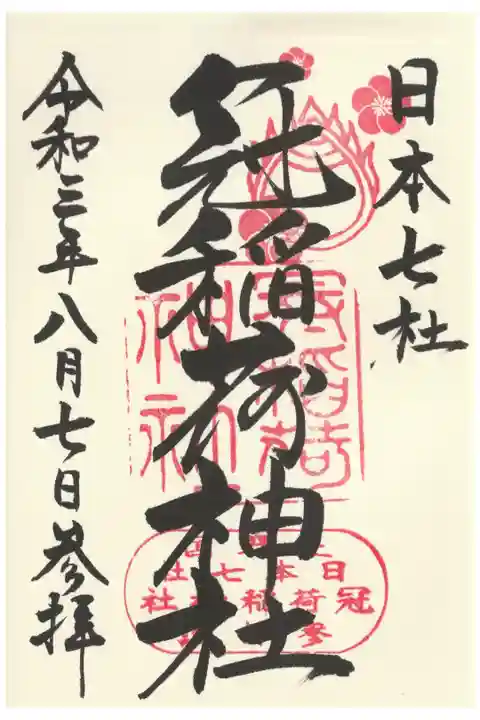 日本七社
冠稲荷神社
令和三年八月七日参拝
冠稲荷
神社
日本七社
冠稲荷神社